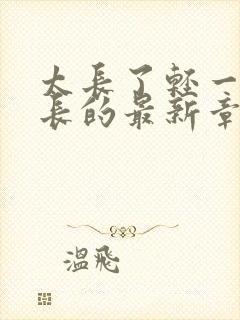 太長了輕一
長的最新章
溫飛